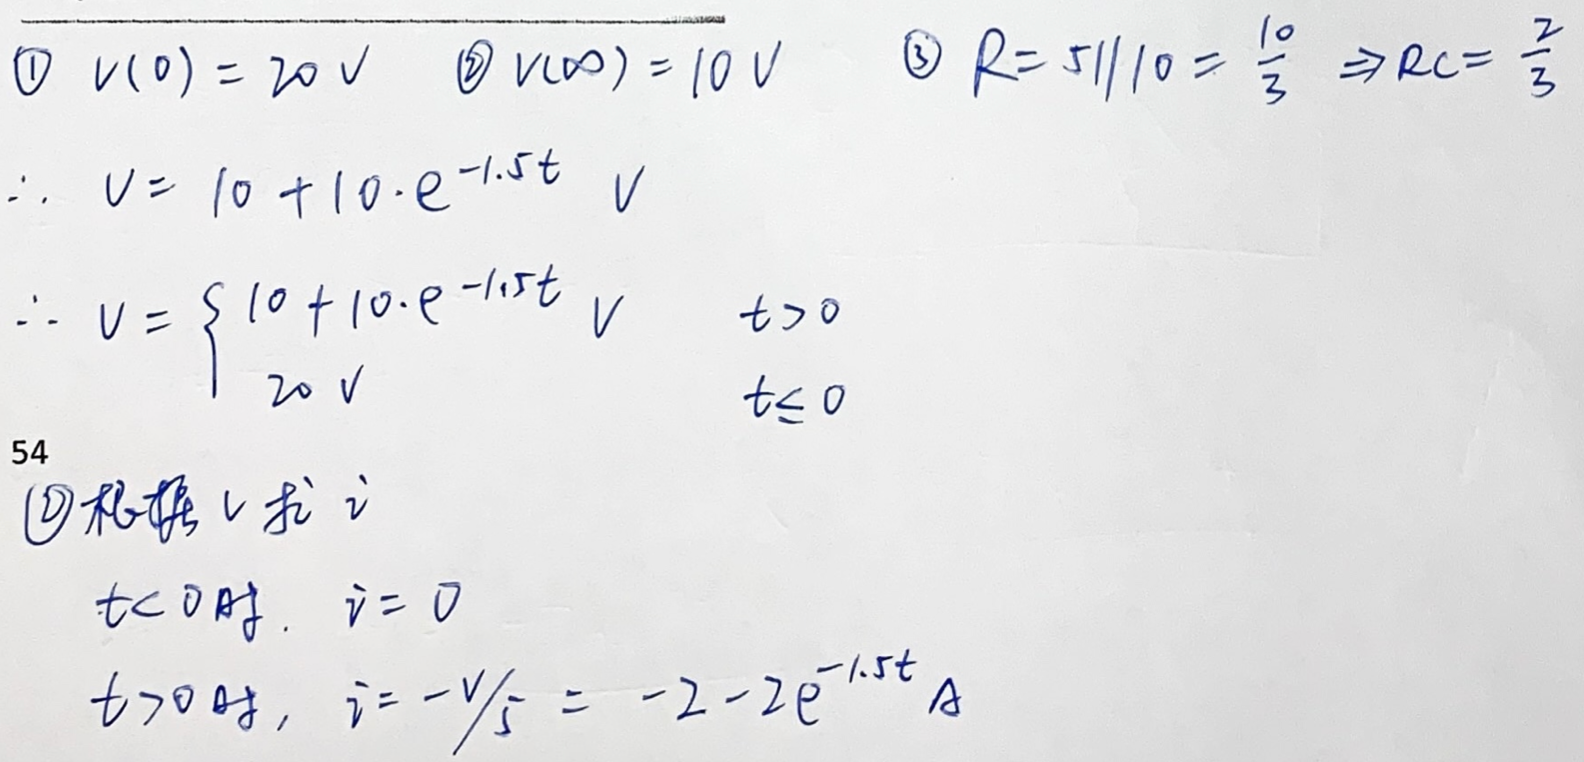 ① V(0) = 20 V ② V(∞) = 10 V ③ R = 5 // 10 = 10/3 ⇒ RC = 2/3
∴ V = 10 + 10·e^{-1.5t} V
∴ V = { 10 + 10·e^{-1.5t} V t > 0
20 V t ≤ 0
54
① 根据 V 求 i
t < 0 时. i = 0
t > 0 时, i = -V/5 = -2 - 2e^{-1.5t} A